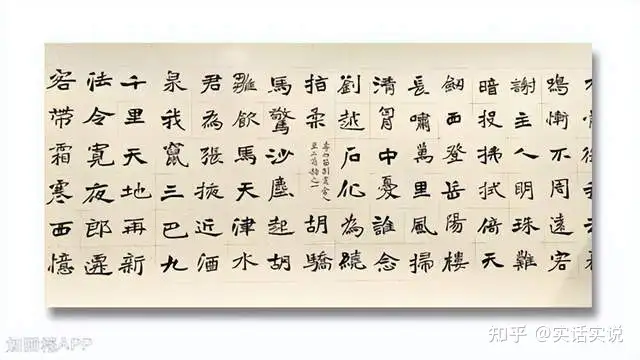 鳴慚不周遠客
謝主人明珠難
暗投拂拭倚天
劒西登岳陽樓
長嘯萬里風掃
清胷中憂誰念
劉越石化為繞
指柔
李白留別賈舍人
至二首
胡驕
馬驚沙塵起胡
雛飲馬天津水
君為張掖近酒
泉我竄三巴九
千里天地再新
法令寬夜郎遷
客帶霜寒西憶
知乎 @实话实说
APP